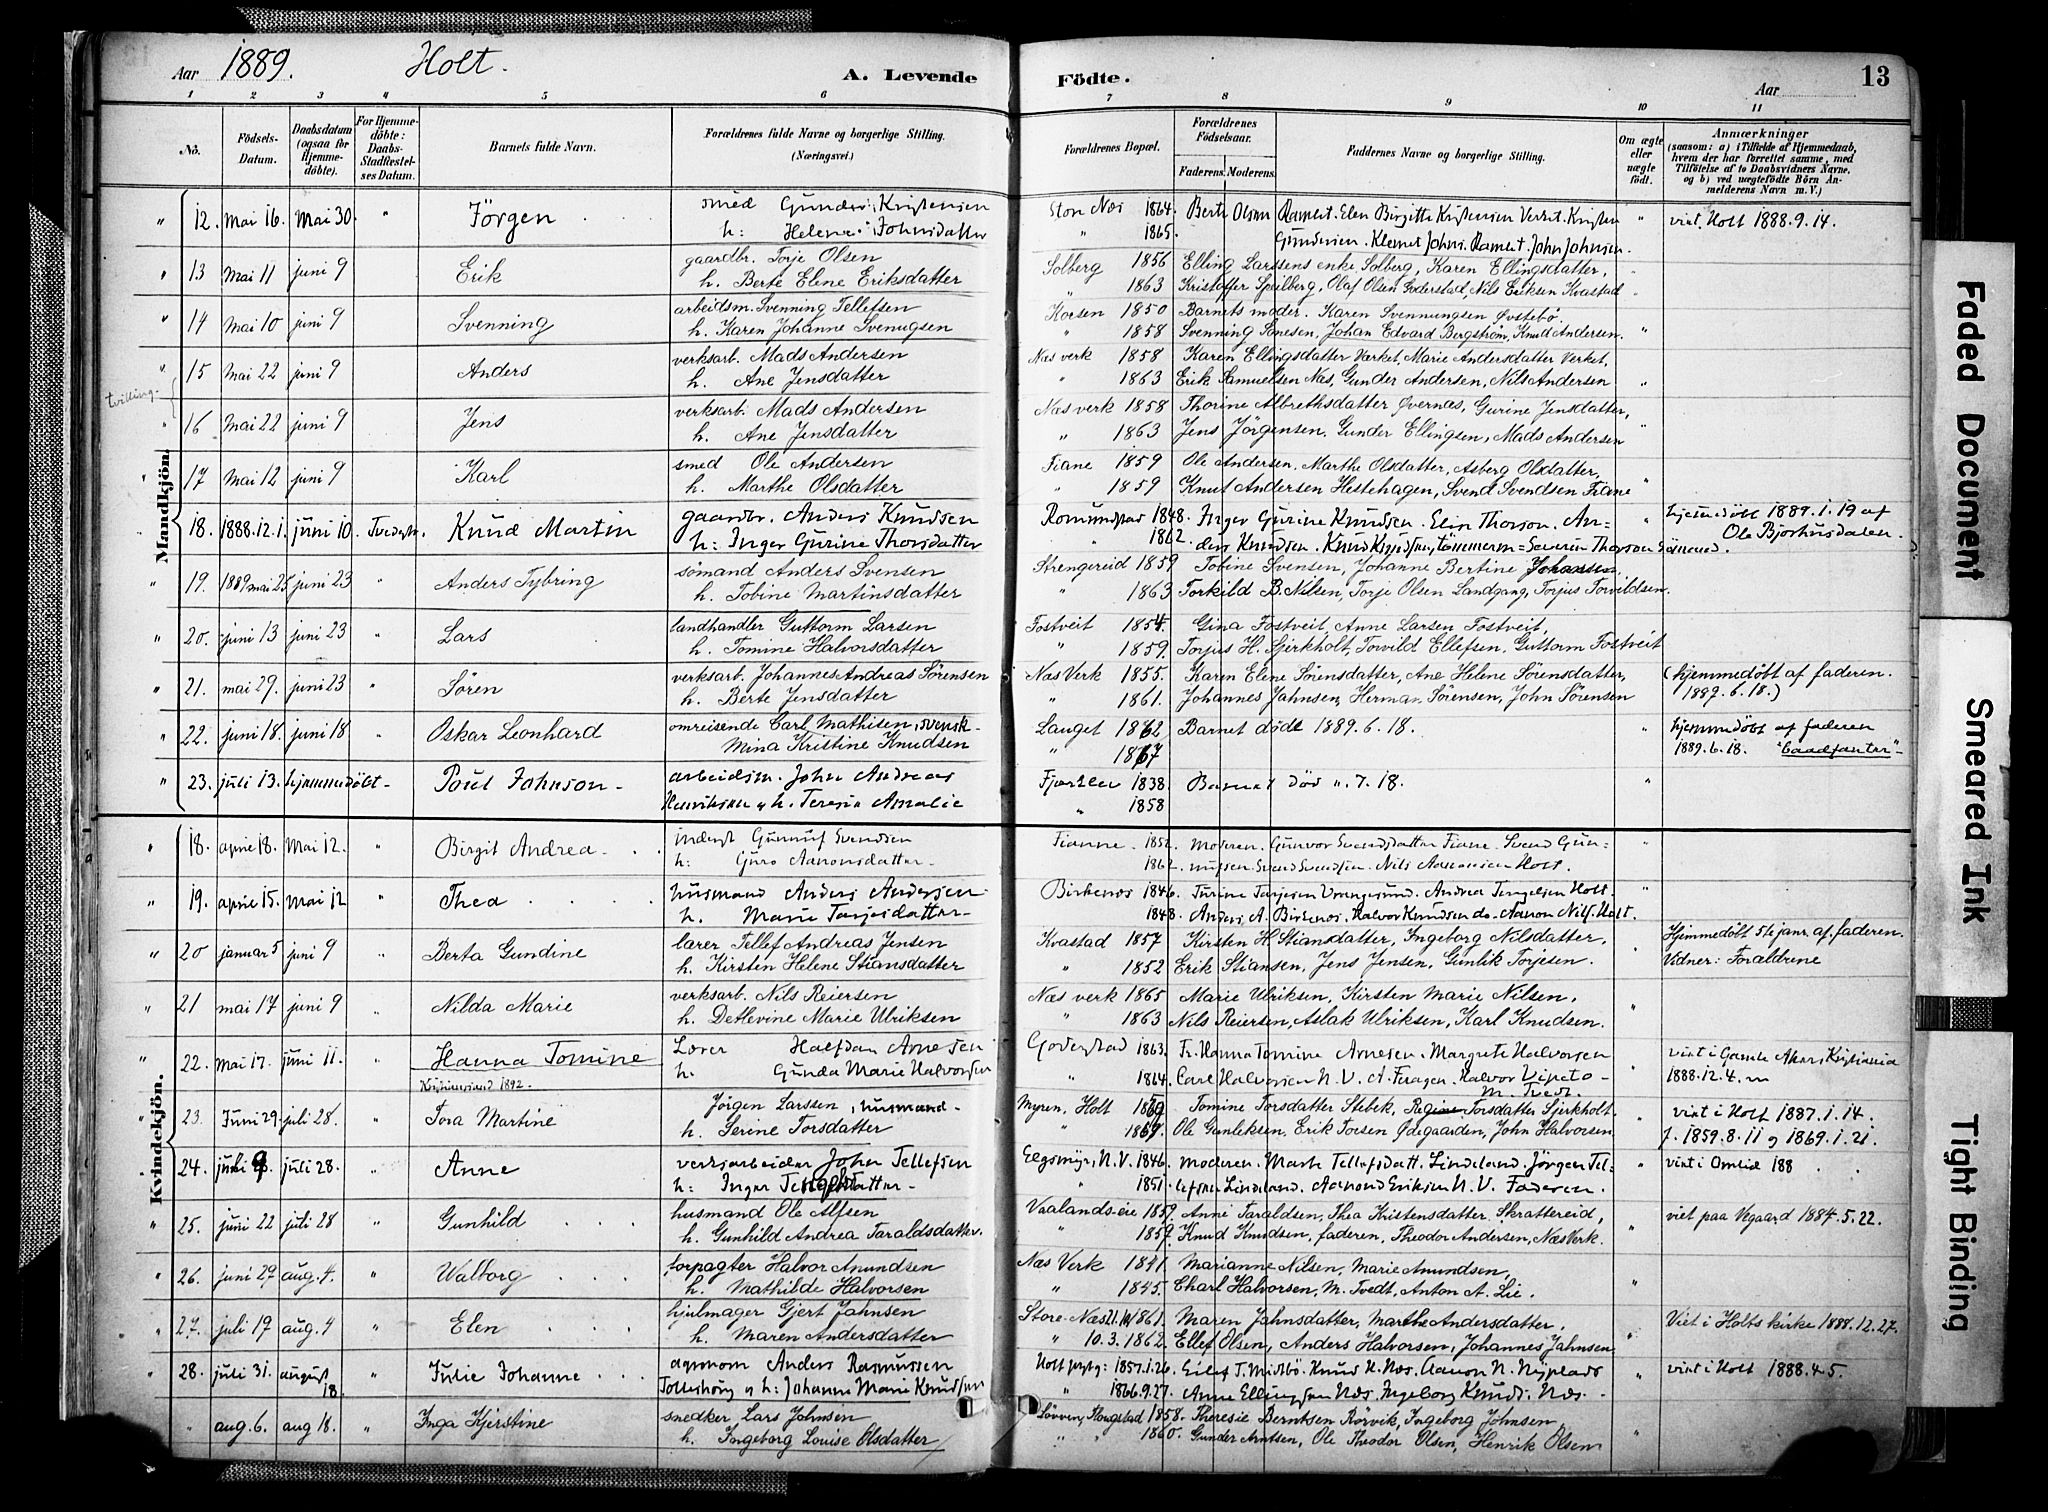 Aar 1889. Holt. A. Levende Födte. Aar 13
1 2 3 4 5 6 7 8 9 10 11
Nò. Födsels-Datum. Daabsdatum (ogsaa for Hjemmedöbte). For Hjemmedöbte: Daabs-Stadfæstelses Datum. Barnets fulde Navn. Forældrenes fulde Navne og borgerlige Stilling. (Næringsvei.) Forældrenes Bopæl. Forældrenes Födselsaar. Faderens. Moderens. Faddernes Navne og borgerlige Stilling. Om ægte eller uægte födt. Anmærkninger (saasom: a) i Tilfælde af Hjemmedaab, hvem der har forrettet samme, med Tilföielse af to Daabsvidners Navne, og b) ved uægtefödte Börn Anmelderens Navn m. V.)
Mandkjön.
" 12. Mai 16. Mai 30. " Jörgen smed Gunder Kristensen Ston Næs 1864. Berte Olsen Ramlet. Elen Birgitte Kristensen Verket. Kristen " viet, Holt 1888.9.14.
h: Helene Johnsdatter " 1865. Gundersen. Klemet Johns. Ramlet. John Johnsen.
" 13 Mai 11 juni 9 Erik gaardbr. Torje Olsen Solberg 1856 Elling Larssens enke Solberg, Karen Ellingsdatter,
h. Berte Elene Eriksdatter " 1863 Kristoffer Spilberg, Olaf Olsen Soderstad, Nils Eriksen Kvastad "
" 14 Mai 10 juni 9 Svenning arbeidsm. Svenning Tellefsen Korsen 1850 Barnets moder. Karen Svennungsen Øvstebø.
h. Karen Johanne Svenugsen " 1858 Svenning Sønesen, Johan Edvard Bergstrøm, Knud Andersen. "
tvilling.
" 15 Mai 22 juni 9 Anders verksarb. Mads Andersen Næs verk 1858 Karen Ellingsdatter Værket, Marie Andersdatter Verket,
h. Ane Jensdatter " 1863 Erik Samuelsen Næs, Gunder Andersen, Nils Andersen "
" 16 Mai 22 juni 9 Jens verksarb. Mads Andersen Næs verk 1858 Thorine Albrethsdatter Øvernæs, Gurine Jensdatter,
h. Ane Jensdatter " 1863 Jens Jörgensen. Gunder Ellingsen, Mads Andersen "
" 17 Mai 12 juni 9 Karl smed Ole Andersen Fiane 1859 Ole Andersen. Marthe Olsdatter, Asberg Olsdatter,
h. Marthe Olsdatter " 1859 Knut Andersen Hestehagen, Svend Svendsen Fiane "
18. 1888.12.1. juni 10. Tvedestr. Knud Martin gaardbr. Anders Knudsen Romundstad 1848. Inger Gurine Knudsen. Elen Thorson. An= " hjemmedøbt 1889.1.19 af
h: Inger Gurine Thorsdatter " 1862. ders Knudsen. Knud Knudsen, tömmerm= Severin Thorson Sömand. Ole Bjorhusdalen.
" 19. 1889 mai 25 juni 23 " Anders Tybring sömand Anders Svensen Strengereid 1859 Tobine Svensen, Johanne Bertine Johansen,
h. Tobine Martinsdatter " 1863 Torkild B. Nilsen, Torje Olsen Landgang, Torjus Torvildsen.
" 20. juni 13 juni 23 " Lars landhandler Guttorm Larsen Fostveit 1854. Gina Fostveit, Anne Larsen Fostveit,
h. Tomine Halvorsdatter " 1859. Torjus H. Sjerkholt, Torvild Ellefsen, Guttorm Fostveit
" 21. mai 29. juni 23 " Sören verksarb. Johannes Andreas Sörensen Næs Verk 1855. Karen Elene Sörensdatter, Ane Helene Sörensdatter, (hjemmedøbt af faderen.
h. Berte Jensdatter " 1861. Johannes Jahnsen, Herman Sörensen, John Sörensen 1889.6.18.)
" 22. juni 18. juni 18 " Oskar Leonhard omreisende Carl Mathisen, svensk- Langet 1862 Barnet døde 1889.6.18. " hjemmedøbt af faderen
Mina Kristine Knudsen " 1867 1889.6.18. "Baadfanter"
" 23. juli 13. hjemmedøbt- Poul Johnson - arbeidsm. John Andreas 1838 Barnet død ". 7. 18. "
Henriksen & h. Teresia Amalie " 1858
Kvindekjön.
" 18. april 18. Mai 12. " Birgit Andrea. inderst Gunnuf Svendsen Fianne 1852. Moderen. Gunvor Svendsdatter Fiane. Svend Gun= "
h: Guro Aanonsdatter. 1862. nufsen Svend Svendsen. Nils Aanonsen Holt.
" 19. april 15. Mai 12 " Thea husmand Anders Andersen Birkenæs 1846. Turine Tarjesen Vrangesund. Andrea Tengelsen Holt. "
h. Marie Tarjesdatter - 1848. Anders A. Birkenæs. Halvor Knudsen do. Aanon Nils. Holt.
" 20 januar 5 juni 9 " Berta Gundine lærer Tellef Andreas Jensen Kvastad 1857 Kirsten H. Stiansdatter, Ingeborg Nilsdatter, " Hjemmedøbt 5te janr. af faderen.
h. Kirsten Helene Stiansdatter " 1852 Erik Stiansen, Jens Jensen, Gunlik Torjesen. Vidner: Forældrene
" 21 mai 17 juni 9 " Nilda Marie verksarb. Nils Reiersen Næs verk 1865 Marie Ulriksen, Kirsten Marie Nilsen,
h. Detlevine Marie Ulriksen " 1863 Nils Reiersen, Aslak Ulriksen, Karl Knudsen. "
" 22. Mai 17. juni 11. " Hanna Tomine Lærer Halfdan Arnesen Goderstad 1863. Fr. Hanna Tomine Arnesen. Margrete Halvorsen viet i Gamle Aker, Kristiania
Kristianssand 1892. h. Gunda Marie Halvorsen " 1864. Carl Halvorsen N. V. A. Feragen. Halvor Vipeto - 1888.12.4.
M. Tvedt.
" 23. Juni 29. juli 28. " Tora Martine Jörgen Larssen, husmand. Myren, Holt 1859 Tomine Torsdatter Stebek, Regine Torsdatter Sjerkholt. " viet i Holt 1887.1.14.
h. Serine Torsdatter " 1869. Ole Gunleksen, Erik Toesen Ødegaarden, John Halvorsen f. 1859.8.11 og 1869.1.21.
24. juli 9 juli 28. " Anne verksarbeider John Tellefsen Elgsmyr, N. V. 1846. Moderen. Marte Tellefsdatt. Lindeland. Jörgen Tel- " viet i Omlid 188
h: Inger Tengelsdatter - " 1851. lefsen Lindeland. Aanond Eriksen N. V. Faderen.
" 25. juni 22 juli 28 " Gunhild husmand Ole Alfsen Vaalands-eie 1859. Anne Taraldsen, Thea Kristensdatter Skrattereid, " viet paa Vegaard 1884.5.22.
h. Gunhild Andrea Taraldsdatter. " 1859. Knud Knudsen, faderen, Theodor Andersen, Næs Verk.
" 26. juni 27 aug. 4. " Walborg forpagter Halvor Amundsen Næs Verk 1841. Marianne Nilsen, Marie Amundsen,
h. Mathilde Halvorsen " 1845. Charl Halvorsen, M. Tvedt, Anton A. Lie. "
" 27. juli 19 aug. 4 " Elen hjulmager Gjert Jahnsen Store-Næs 1861. Maren Jahnsdatter, Marthe Andersdatter, Viet i Holts kirke 1888.12.27.
h. Maren Andersdatter " 10.3.1862. Ellef Olsen, Anders Halvorsen, Johannes Jahnsen "
" 28. juli 31. august 18. " Julie Johanne agronom Anders Rasmussen Holt prstg: 1857.1.26. Eilef T. Midtbö. Knud H. Næs. Aanon N. Nyplads " viet i Holt 1888.4.5.
& h: Johanne Marie Knudsen " 1866.9.27. Anne Ellingsen Næs. Ingeborg Knuds. Næs.
" aug. 6. aug 18. " Inga Kjerstine snedker Lars Johnsen 1858. Theresie Berntsen Rörvik, Ingeborg Johnsen,
h. Ingeborg Louise Olsdatter " 1860. Gunder Arntsen, Ole Theodor Olsen, Henrik Olsen "
Faded Document
Smeared Ink
Tight Binding